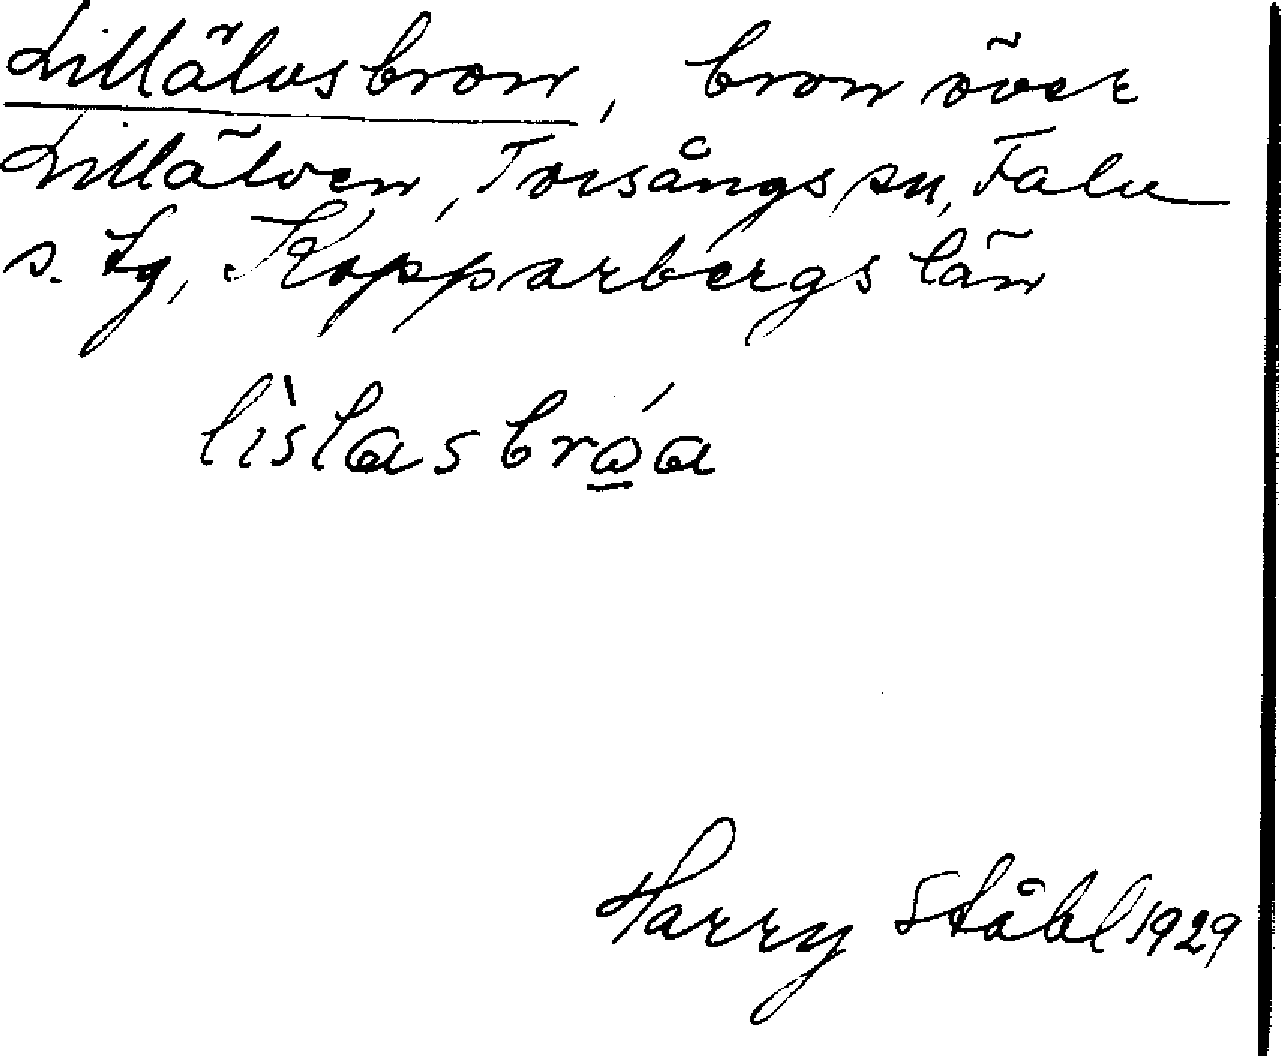 Lillälvsbron, bron över
Lillälven, Torsångs sn, Falu
s. tg, Kopparbergs län
lìslasbrǫ́a
Harry Ståhl 1929